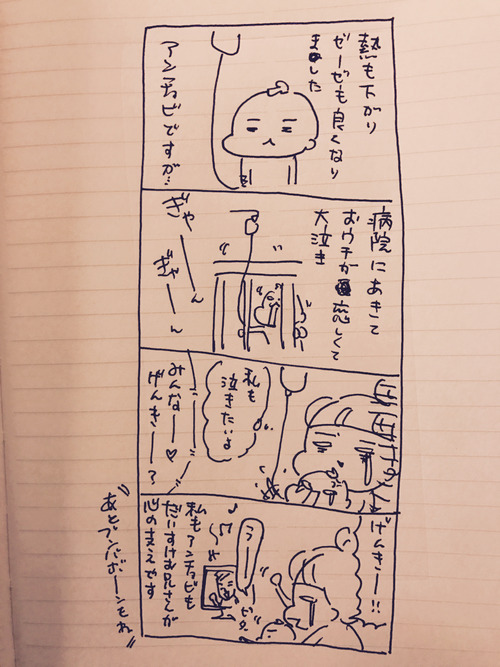 熱も下がり
ゼーゼも良くなり
ました
アンチョビですが…
病院にあきて
おウチが恋しくて
大泣き
ぎゃーーん
ぎゃーーん
私も
泣きたいよ
みんなー♥
げんきー?
げんきー!!
うー
私もアンチョビも
だいすけお兄さんが
心の支えやす
あとブンバボーンもね